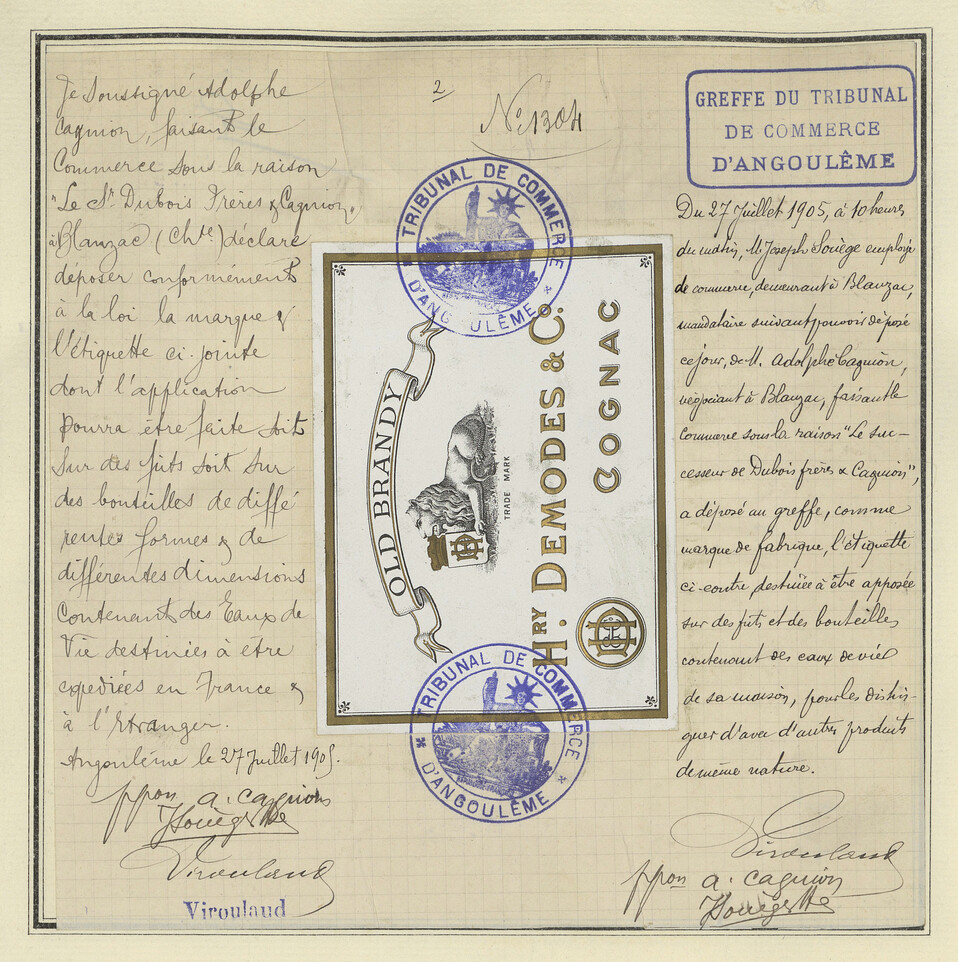 Je Soussigné Adolphe
Cagnion, faisant le
Commerce Sous la raison
"Le Sr. Dubois Frères & Cagnion"
à Blanzac (Chte) déclare
déposer conformément
à la loi la marque &
l'étiquette ci-jointe
dont l'application
pourra être faite soit
Sur des fûts soit sur
des bouteilles de diffé
rentes formes & de
différentes dimensions
Contenant des Eaux de
Vie destinées à être
expediées en France &
à l'Etranger.
Angoulême le 27 Juillet 1905.
ppon a. Cagnion
Virouland
Viroulaud
2
No. 1304
TRIBUNAL DE COMMERCE
D'ANGOULÊME
OLD BRANDY
TRADE MARK
HRY. DEMODES & Co.
COGNAC
TRIBUNAL DE COMMERCE
D'ANGOULÊME
GREFFE DU TRIBUNAL
DE COMMERCE
D'ANGOULÊME
Du 27 Juillet 1905, à 10 heures
du matin, M. Joseph Souège employé
de commerce, demeurant à Blanzac,
mandataire suivant pouvoir déposé
ce jour, de M. Adolphe Cagnion,
négociant à Blanzac, faisant le
commerce sous la raison "Le suc-
cesseur de Dubois frères & Cagnion",
a déposé au greffe, comme
marque de fabrique, l'étiquette
ci-contre destinée à être apposée
sur des fûts et des bouteilles
contenant des eaux de vie
de sa maison, pour les distin-
guer d'avec d'autres produits
de même nature.
Viroulaud
ppon a. Cagnion